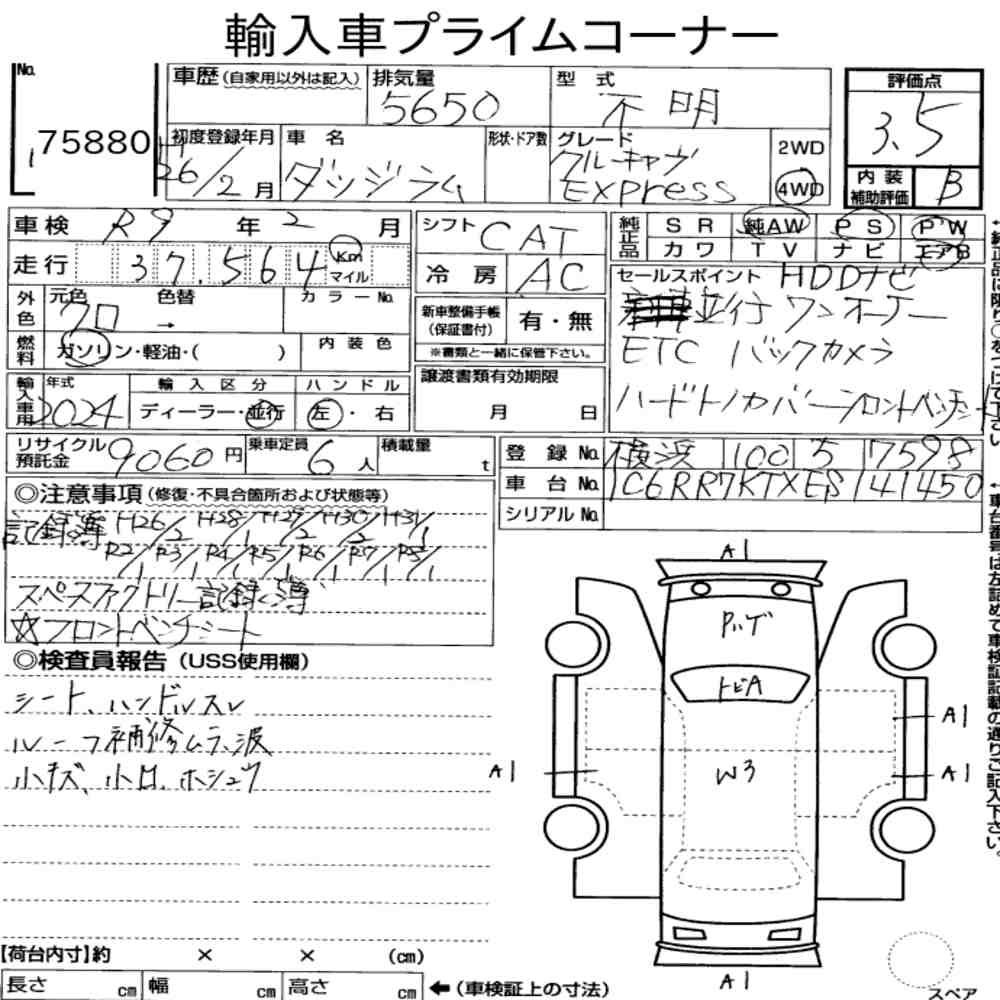 輸入車プライムコーナー
No. 75880
車歴 (自家用以外は記入)
排気量 5650
型式 不明
評価点 3.5
初度登録年月 H26/2月
車名 ダッジラム
形状・ドア数
グレード クルーキャブ EXPRESS
2WD
4WD
内装補助評価 B
車検 R9年2月
シフト CAT
純正品 SR 純AW PS PW
カワ TV ナビ エアB
走行 37,564 Km マイル
冷房 AC
セールスポイント HDDナビ
並行 ワンオーナー
ETC バックカメラ
ハードトノカバー フロントベンチシート
外色 元色 クロ 色替 → カラーNo.
新車整備手帳(保証書付) 有・無
※書類と一緒に保管下さい。
燃料 ガソリン・軽油・( ) 内装色
輸入車用 年式 2024
輸入区分 ディーラー・並行
ハンドル 左・右
譲渡書類有効期限
月 日
リサイクル預託金 9060円
乗車定員 6人
積載量 t
登録No. 横浜 100 う 7598
車台No. 1C6RR7KTXES141450
シリアルNo.
◎注意事項(修復・不具合箇所および状態等)
記録簿 H26/2 H28/1 H29/2 H30/2 H31/1
R2/1 R3/1 R4/1 R5/1 R6/1 R7/1 R8/1
スペースファクトリー記録簿
☆フロントベンチシート
◎検査員報告(USS使用欄)
シート、ハンドルスレ
ルーフ補修ムラ、波
小キズ、小凹、ホシュウ
A1
P.バッゲ
トビA
A1
A1
W3
A1
A1
スペア
【荷台内寸】約 × × (cm)
長さ cm 幅 cm 高さ cm ←(車検証上の寸法)
↑車台番号は左詰めで車検証記載の通りご記入下さい。